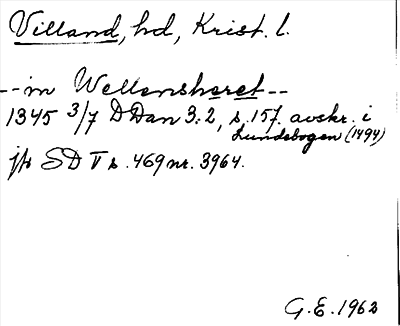 Villand, hd, Krist. l.
--in Wellanshæret--
1345 3/7 DDan 3:2, s. 157. avskr. i
Lundebogen (1494)
jfr SD V s. 469 nr. 3964.
G.E. 1962